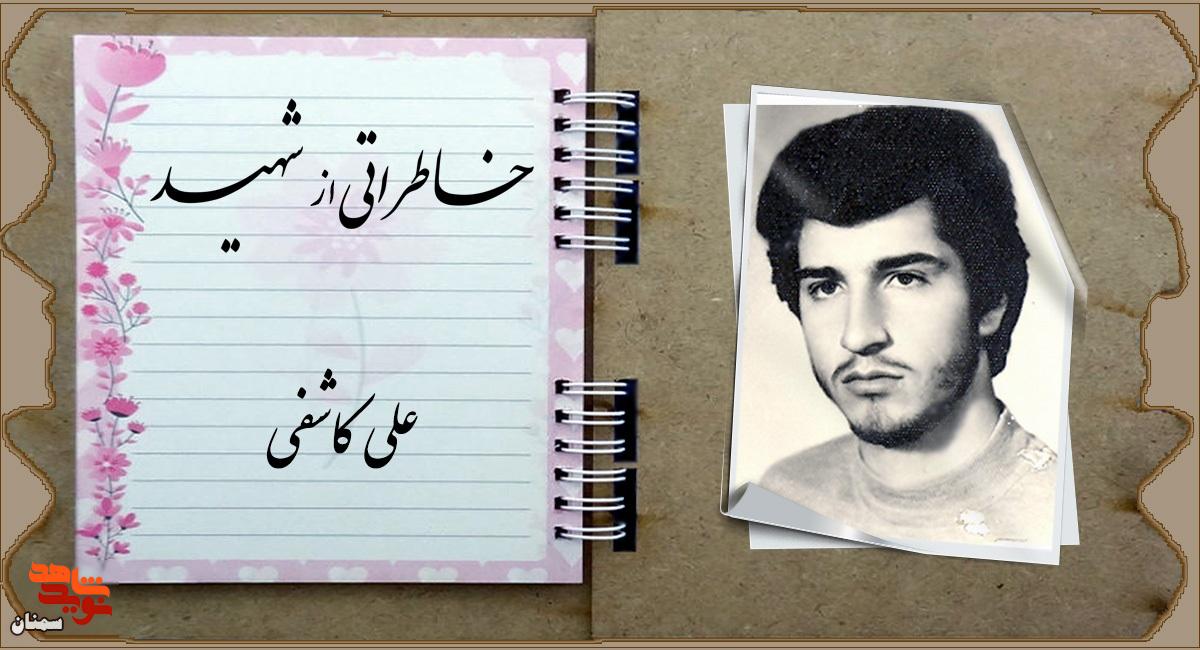 خاطراتی از شهید
علی کاشفی
نوید شاهد
سمنان